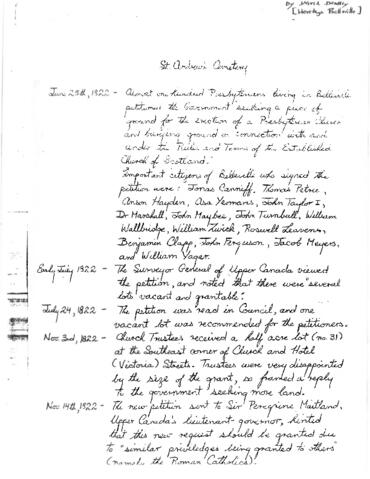 By David Bentley
[Heritage Belleville]
St Andrew's Cemetery
June 25th, 1822 - Almost one hundred Presbyterians living in Belleville
petitioned the Government seeking a piece of
ground for the erection of a Presbyterian Church
and burying ground in "connection with and
under the Rules and Terms of the Established
Church of Scotland."
Important citizens of Belleville who signed the
petition were: Jonas Canniff, Thomas Petrie,
Anson Hayden, Asa Yeomans, John Taylor I,
Dr Marshall, John Maybee, John Turnbull, William
Wallbridge, William Zwick, Roswell Leavens,
Benjamin Clapp, John Ferguson, Jacob Meyers,
and William Yager.
Early July 1822 - The Surveyor General of Upper Canada viewed
the petition, and noted that there were several
lots vacant and grantable.
July 24, 1822 - The petition was read in Council, and one
vacant lot was recommended for the petitioners.
Nov 3rd, 1822 - Church Trustees received a half acre lot (no. 31)
at the Southeast corner of Church and Hotel
(Victoria) Streets. Trustees were very disappointed
by the size of the grant, so framed a reply
to the government seeking more land.
Nov 14th, 1822 - The new petition sent to Sir Peregrine Maitland,
Upper Canada's lieutenant-governor, hinted
that this new request should be granted due
to "similar priviledges being granted to others"
(namely the Roman Catholics).